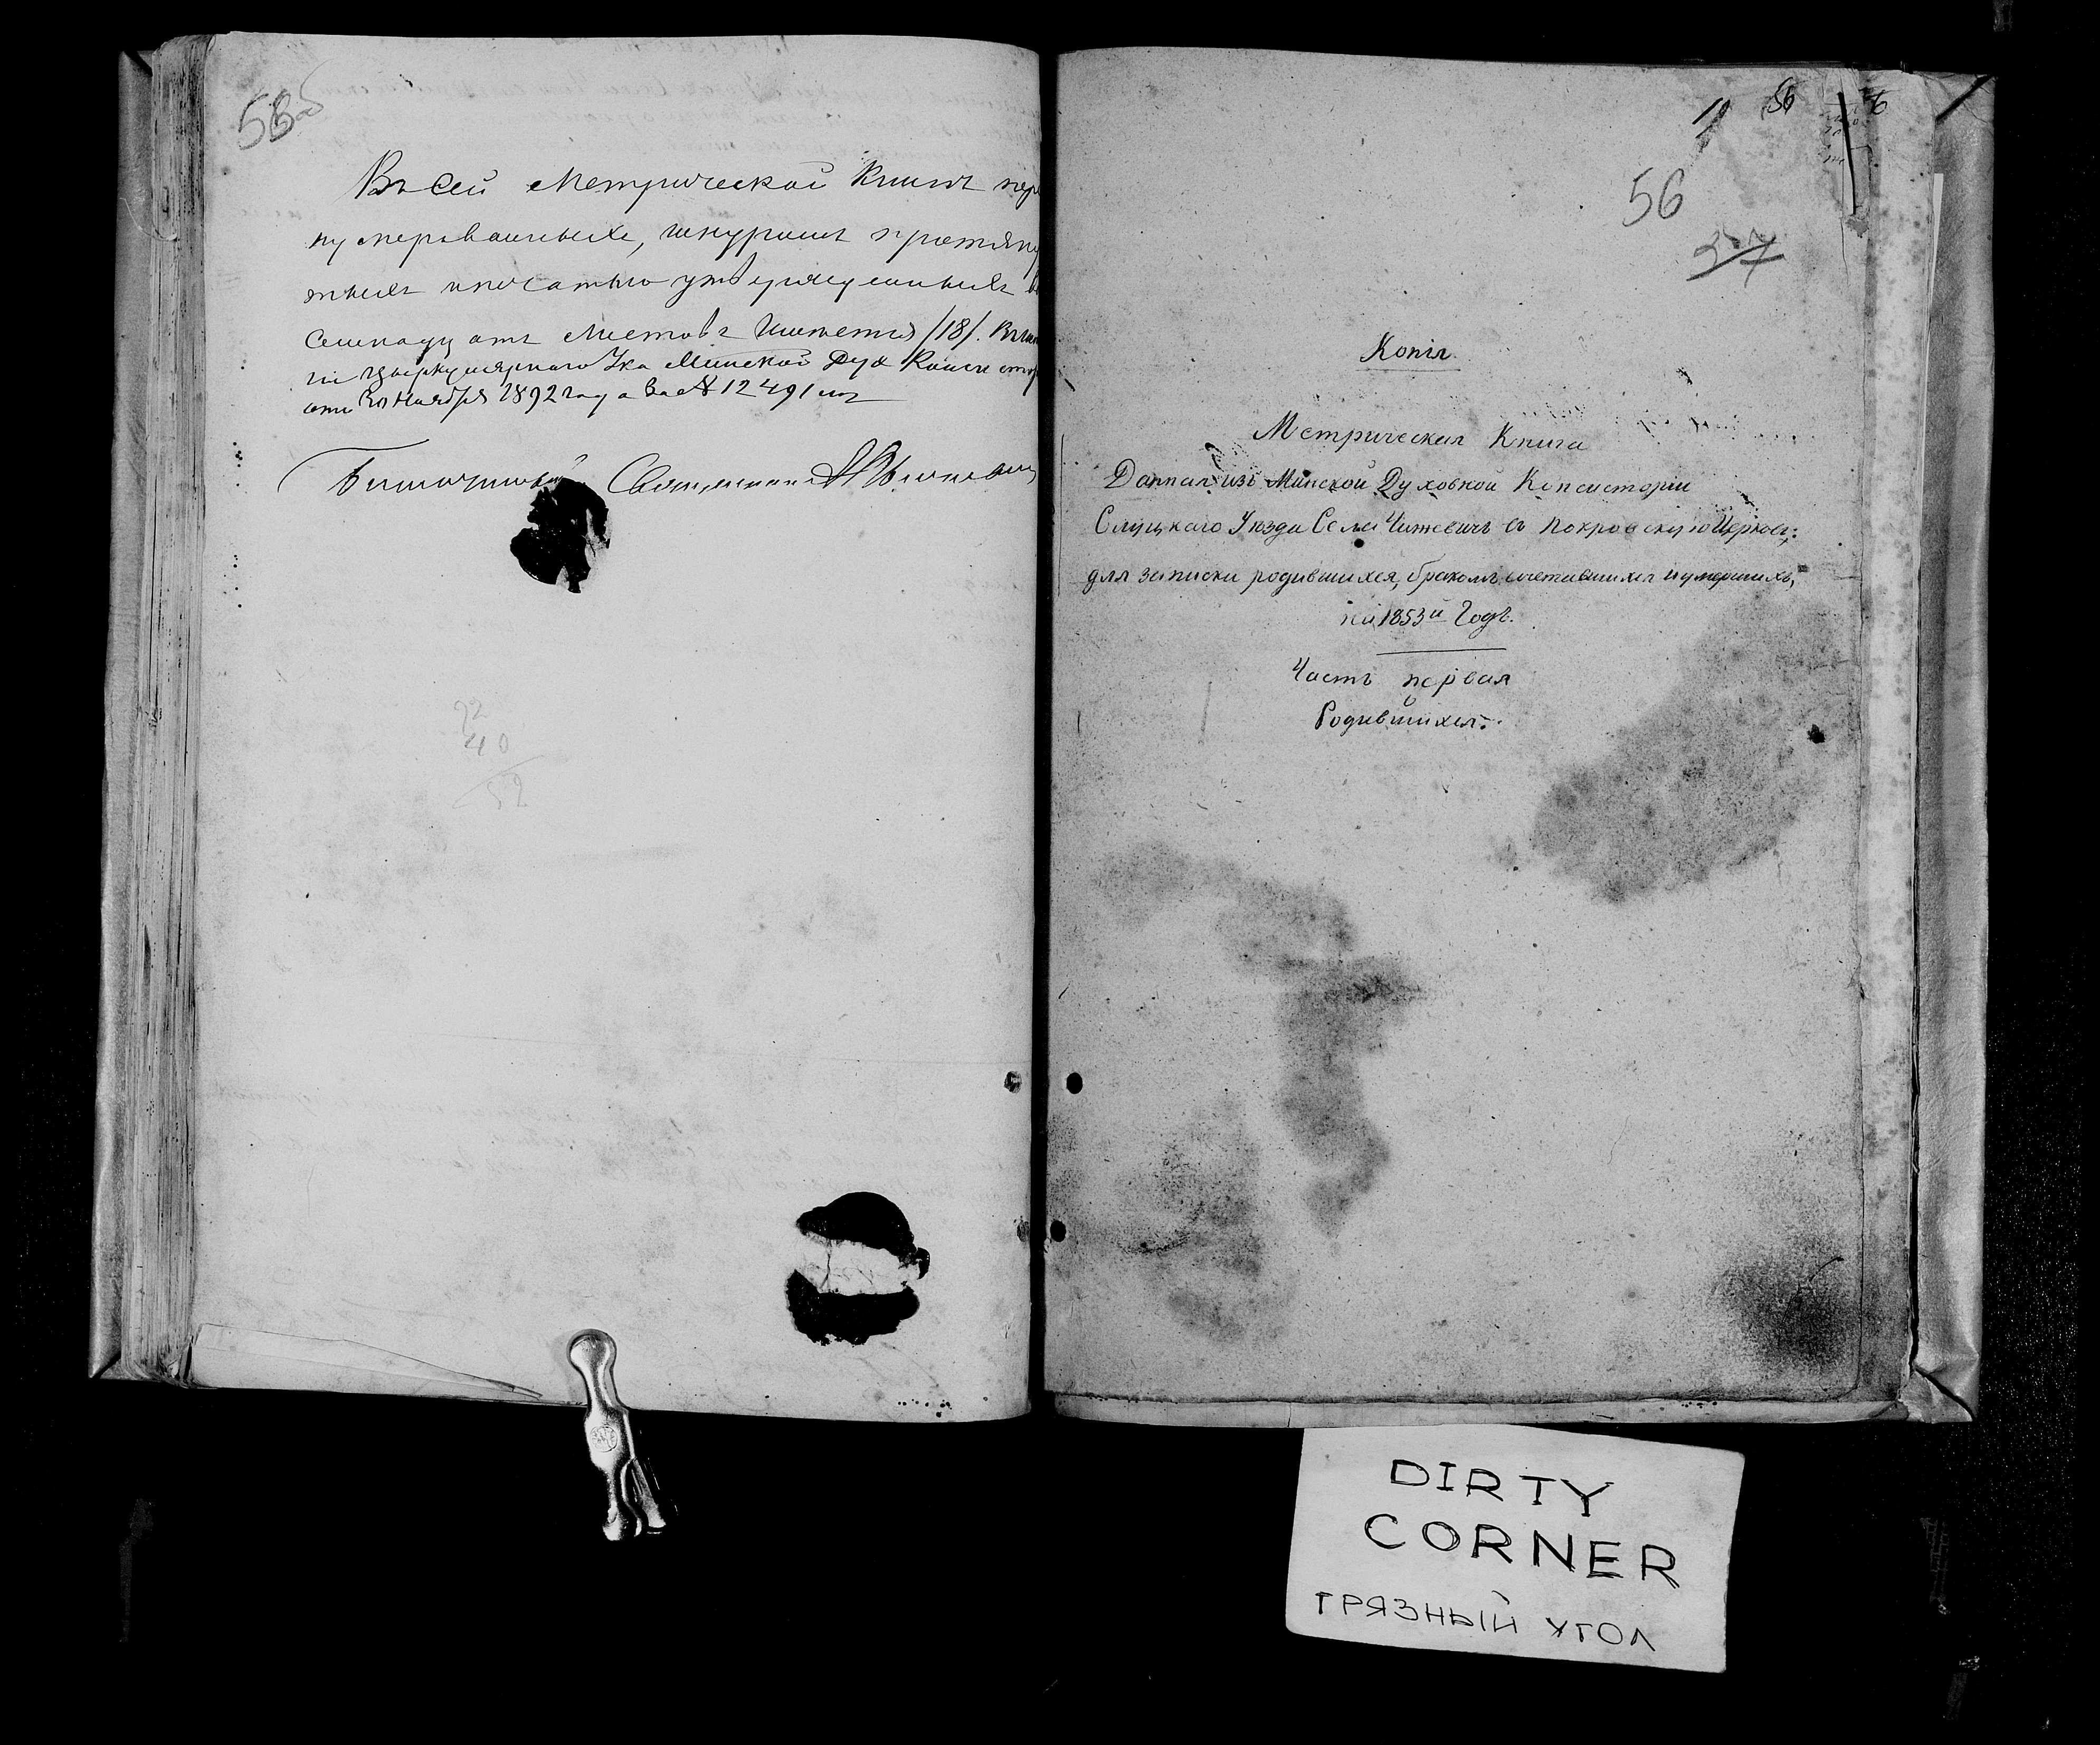 Въ сей Метрической Книгѣ пере
нумерованныхъ, шнуромъ протяну
тыхъ и печатью утвержденныхъ
семнадцать листовъ имѣется /18/.
циркулярнаго Ука Минской Дух Консистор
отъ 30 Ноября 1892 года за № 12491 мъ
Благочинный Священникъ
22
40
52
56
56
57
Копія
Метрическая Книга
Данная изъ Минской Духовной Консисторіи
Слуцкаго Уѣзда Села Чижевичъ въ Покровскую Церковь;
для записки родившихся, бракомъ сочетавшихся и умершихъ,
на 1853й Годъ.
Часть первая
Родившихся.
DIRTY
CORNER
ГРЯЗНЫЙ УГОЛ